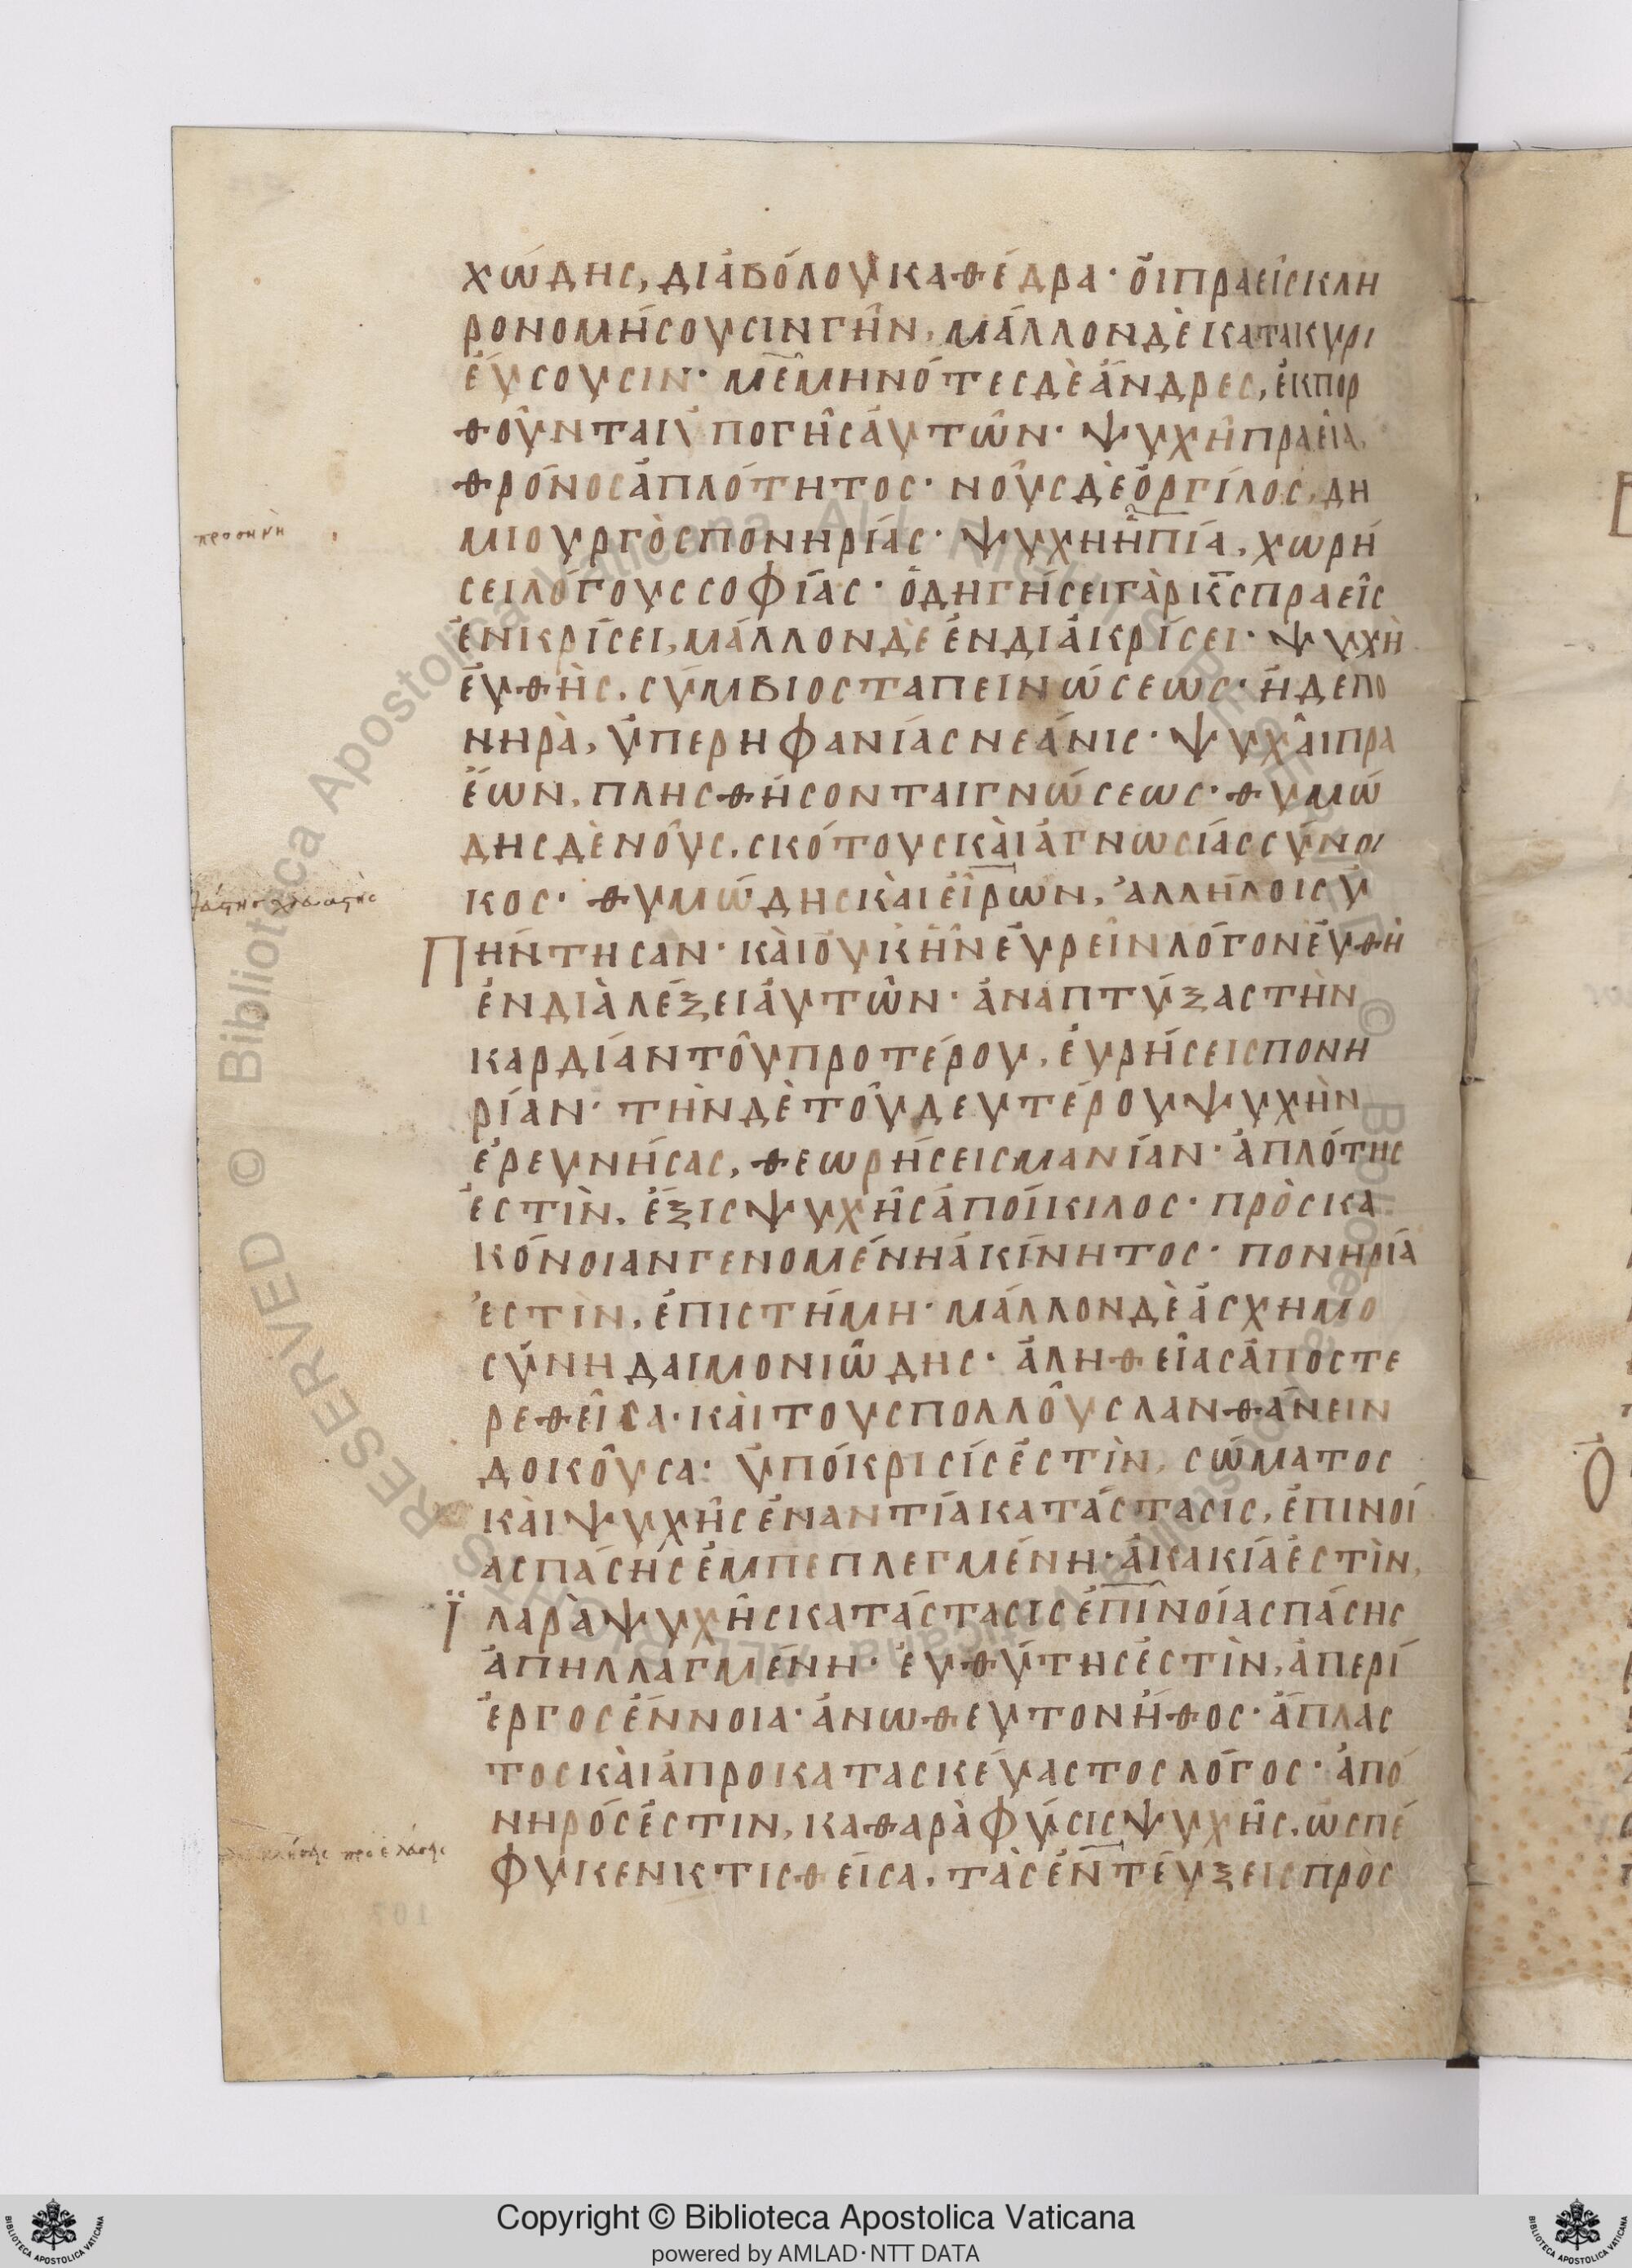 χώδης, διἀβόλου καθέδρα· ὁι πραεῖς κλη
ρονομήσουσιν γῆν, μάλλον δὲ κατακυρι
ἐύσουσιν· μεμηνότες δὲ ἄνδρες, ἐκπορ
θοῦνται ὑπο γῆς ἀυτῶν· ψυχὴ πραεῖα,
θρόνος ἁπλότητος· νοῦς δὲ ὀργίλος, δη
μιουργὸς πονηρίας· ψυχὴ ἠπία, χωρή
σει λόγους σοφίας· ὁδηγήσει γὰρ κς πραεῖς
ἐν κρίσει, μάλλον δὲ ἐν διακρίσει· ψυχὴ
ἐυθὴς, σύμβιος ταπεινώσεως· ἡ δε πο
νηρὰ, ὑπερηφανίας νεάνις· ψυχὰι πρα
ἕων, πλησθήσονται γνώσεως· θυμώ
δης δὲ νοῦς, σκότους κὰι ἀγνωσίας σύνοι
κος· θυμώδης κὰι εἴρων, ἀλλήλοις ὑ
πήντησαν· κὰι οὐκ ἦν ἑυρεῖν λόγον ἐυθῆ
ἐν διὰλέξει ἀυτῶν· ἀναπτύξας τὴν
καρδίαν τοῦ προτέρου, ἑυρήσεις πονη
ρίαν· τὴν δὲ τοῦ δευτέρου ψυχὴν
ἐρευνήσας, θεωρήσεις μανίαν· ἁπλότης
ἐστὶν, ἕξις ψυχῆς ἀποίκιλος· πρὸς κα
κόνοιαν γενομένη ἀκίνητος· πονηρία
ἐστὶν, ἐπιστήμη· μάλλον δὲ ἀσχημο
σύνη δαιμονιώδης· ἀληθείας ἀποστε
ρεθεῖσα· κὰι τους πολλοῦς λανθάνειν
δοκοῦσα: ὑπόκρισίς ἐστὶν, σώματος
κὰι ψυχῆς ἐναντία κατάστασις, ἐπινοί
ας πάσης ἐμπεπλεγμένη· ἀκακία ἐστὶν,
ϊλαρὰ ψυχῆς κατάστασις ἐπινοίας πάσης
ἀπηλλαγμένη· ἐυθύτης ἐστὶν, ἀπερί
ἐργος ἔννοια· ἀνωθευτον ἦθος· ἄπλασ
τος κὰι ἀπροκατασκέυαστος λόγος· ἀπό
νηρός ἐστιν, καθαρὰ φύσις ψυχῆς, ὡς πέ
φυκεν κτισθεῖσα, τὰς ἐντέυξεις πρὸς
προσηνὴ